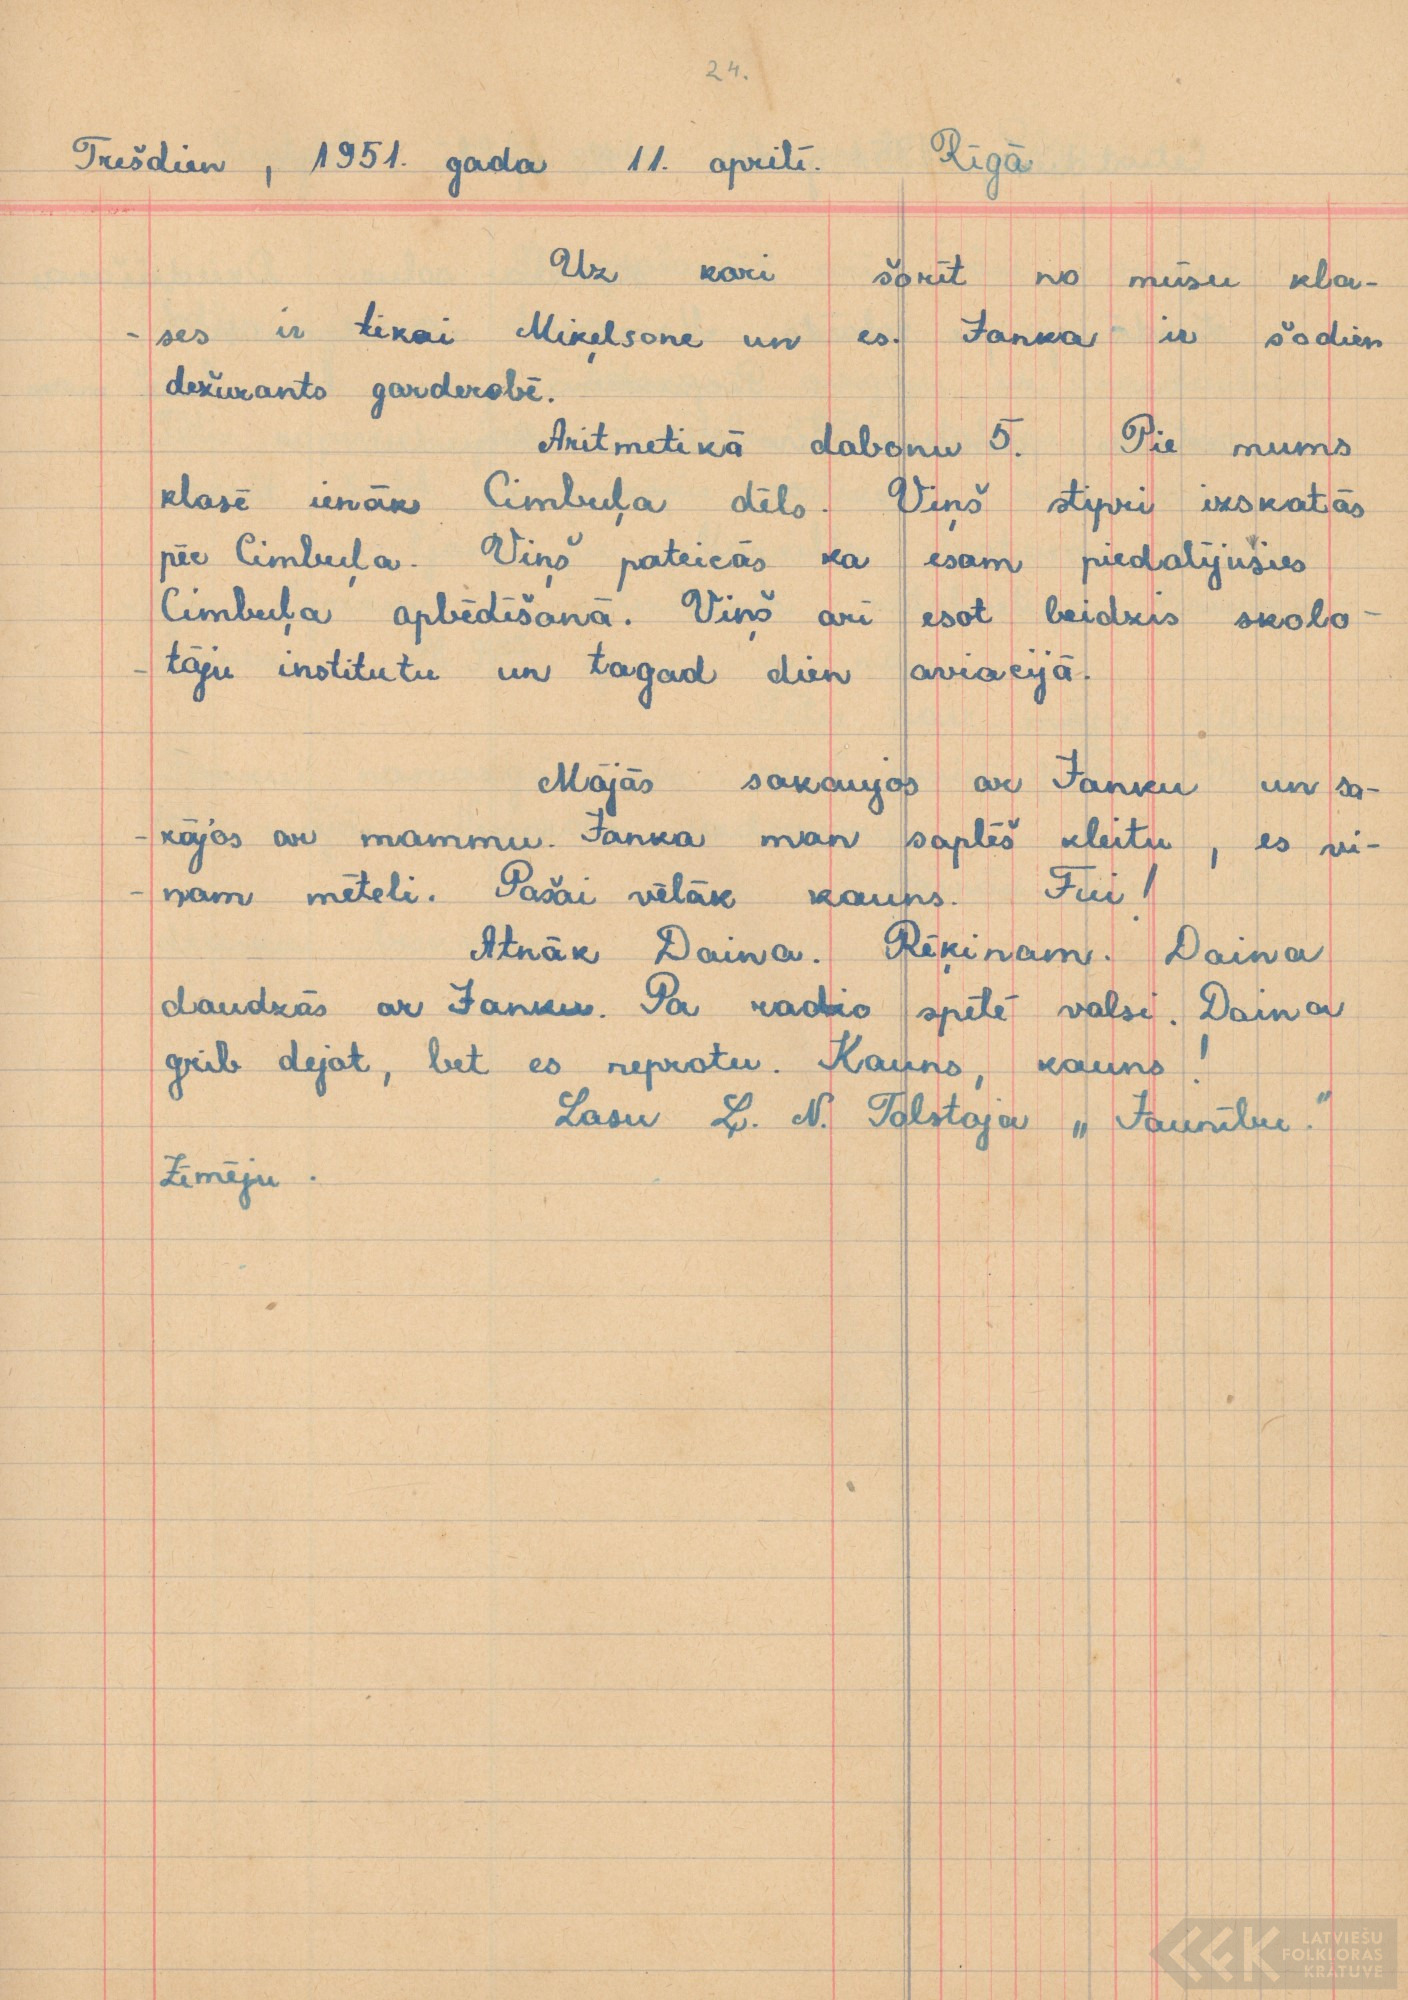 24.
Trešdien, 1951. gada 11. aprīlī. Rīgā
Uz kori šorīt no mūsu kla-
- ses ir tikai Miķelsone un es. Janka ir šodien
dežurants garderobē.
Aritmetikā dabonu 5. Pie mums
klasē ienāk Cimbuļa dēls. Viņš stipri izskatās
pēc Cimbuļa. Viņš pateicās ka esam piedalījušies
Cimbuļa apbēdīšanā. Viņš arī esot beidzis skolo-
- tāju institutu un tagad dien aviacijā.
Mājās sakaujos ar Janku un sa-
- kājos ar mammu. Janka man saplēš kleitu, es vi-
- ņam mēteli. Pašai vēlāk kauns. Fui!
Atnāk Daina. Rēķinam. Daina
daudzās ar Janku. Pa radio spēlē valsi. Daina
grib dejot, bet es neprotu. Kauns, kauns!
Lasu Ļ. N. Tolstoja „Jaunību."
Zīmēju.
LATVIEŠU
FOLKLORAS
KRĀTUVE